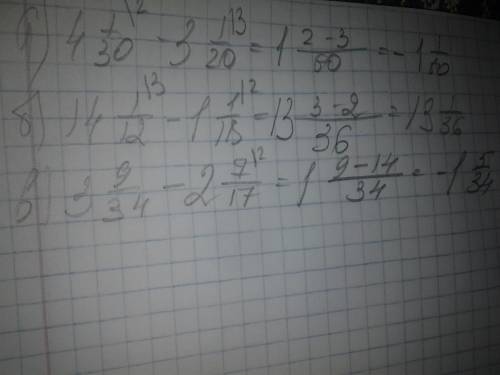 а) 4 1/30 \2 - 3 1/20 \3 = 1 (2-3)/60 = -1 1/60
б) 14 1/12 \3 - 1 1/18 \2 = 13 (3-2)/36 = 13 1/36
в) 3 9/34 - 2 7/17 \2 = 1 (9-14)/34 = -1 5/34